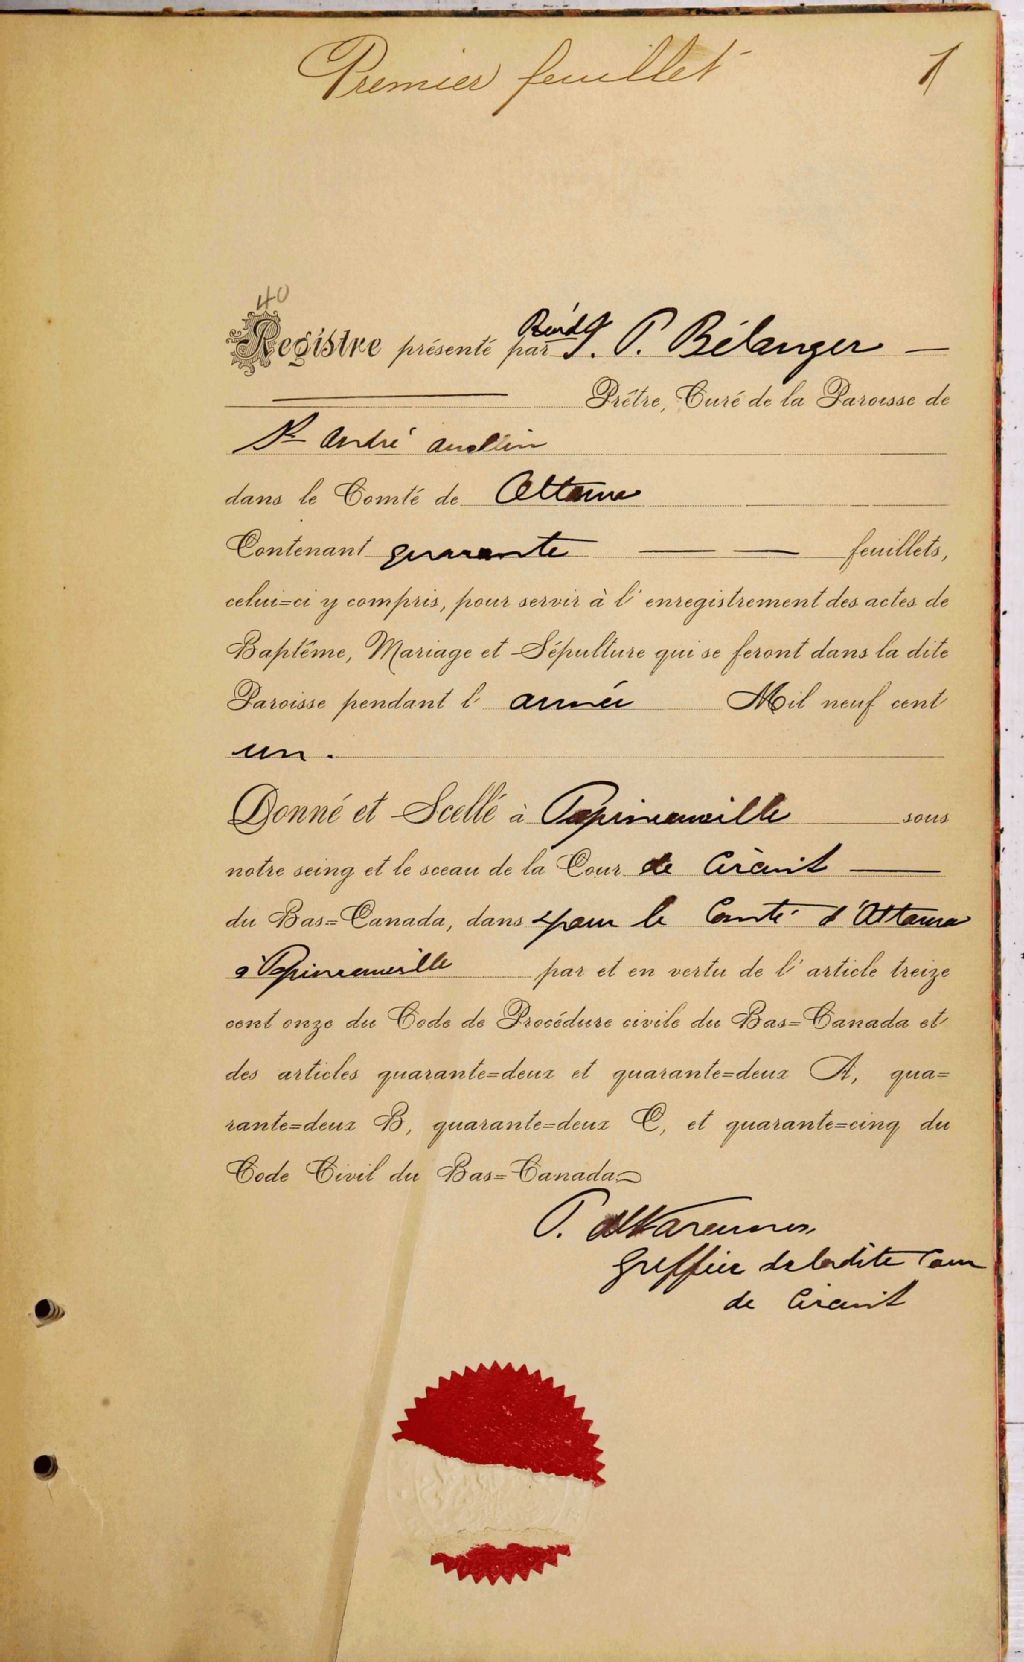 Premier feuillet 1
40
Registre présenté par Révd J. P. Bélanger
Prêtre, Curé de la Paroisse de
St André Avellin
dans le Comté de Ottawa
Contenant quarante feuillets,
celui=ci y compris, pour servir à l'enregistrement des actes de
Baptême, Mariage et Sépulture qui se feront dans la dite
Paroisse pendant l'année Mil neuf cent
un.
Donné et Scellé à Papineauville sous
notre seing et le sceau de la Cour de Circuit
du Bas=Canada, dans & pour le Comté d'Ottawa
à Papineauville par et en vertu de l'article treize
cent onze du Code de Procédure civile du Bas=Canada et
des articles quarante=deux et quarante=deux A, qua=
rante=deux B, quarante=deux C, et quarante=cinq du
Code Civil du Bas=Canada
P. Varennes
Greffier de ladite Cour
de Circuit